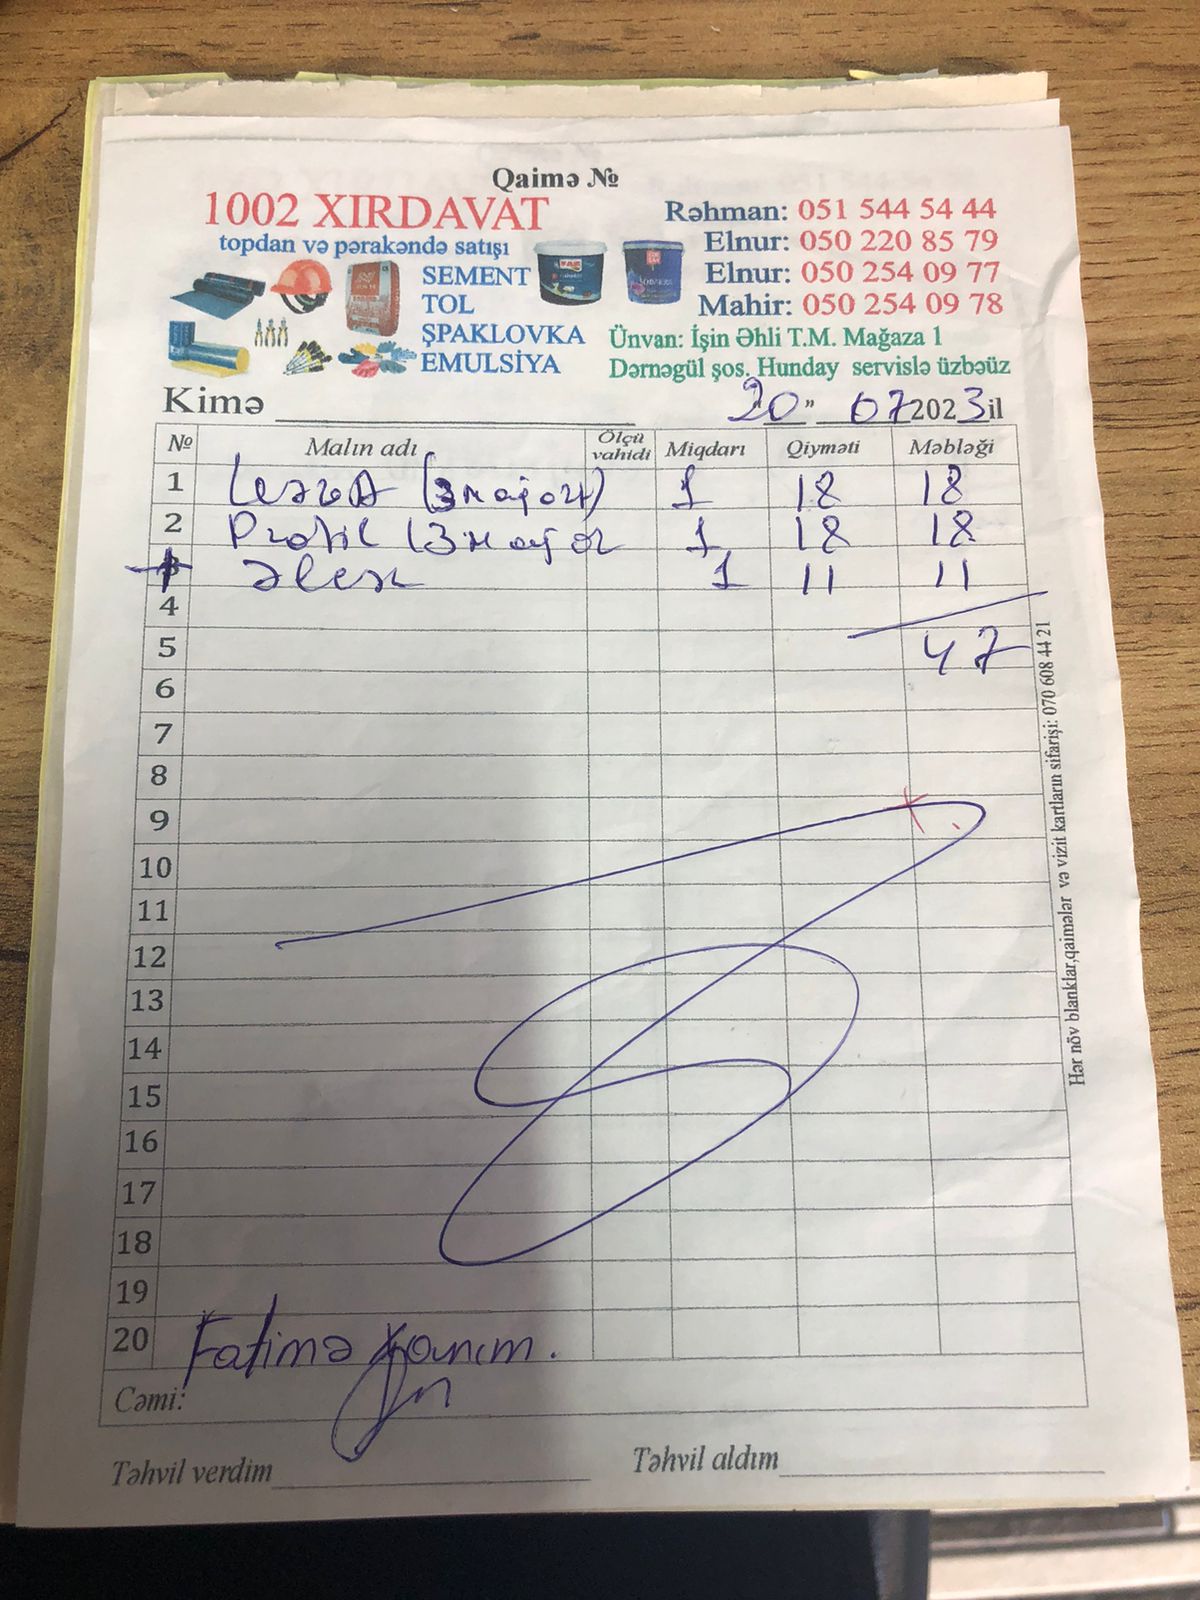 Qaimə №
1002 XIRDAVAT
topdan və pərakəndə satışı
SEMENT
TOL
ŞPAKLOVKA
EMULSİYA
Rəhman: 051 544 54 44
Elnur: 050 220 85 79
Elnur: 050 254 09 77
Mahir: 050 254 09 78
Ünvan: İşin Əhli T.M. Mağaza 1
Dərnəgül şos. Hunday servislə üzbəüz
Kimə "20" 07 2023 il
№ Malın adı Ölçü vahidi Miqdarı Qiyməti Məbləği
1 1 18 18
2 Profil 1 18 18
3 1 11 11
4
5 47
6
7
8
9
10
11
12
13
14
15
16
17
18
19
20 Fatimə xanım.
Cəmi:
Təhvil verdim Təhvil aldım
Hər növ blanklar,qaimələr və vizit kartların sifarişi: 070 608 44 21